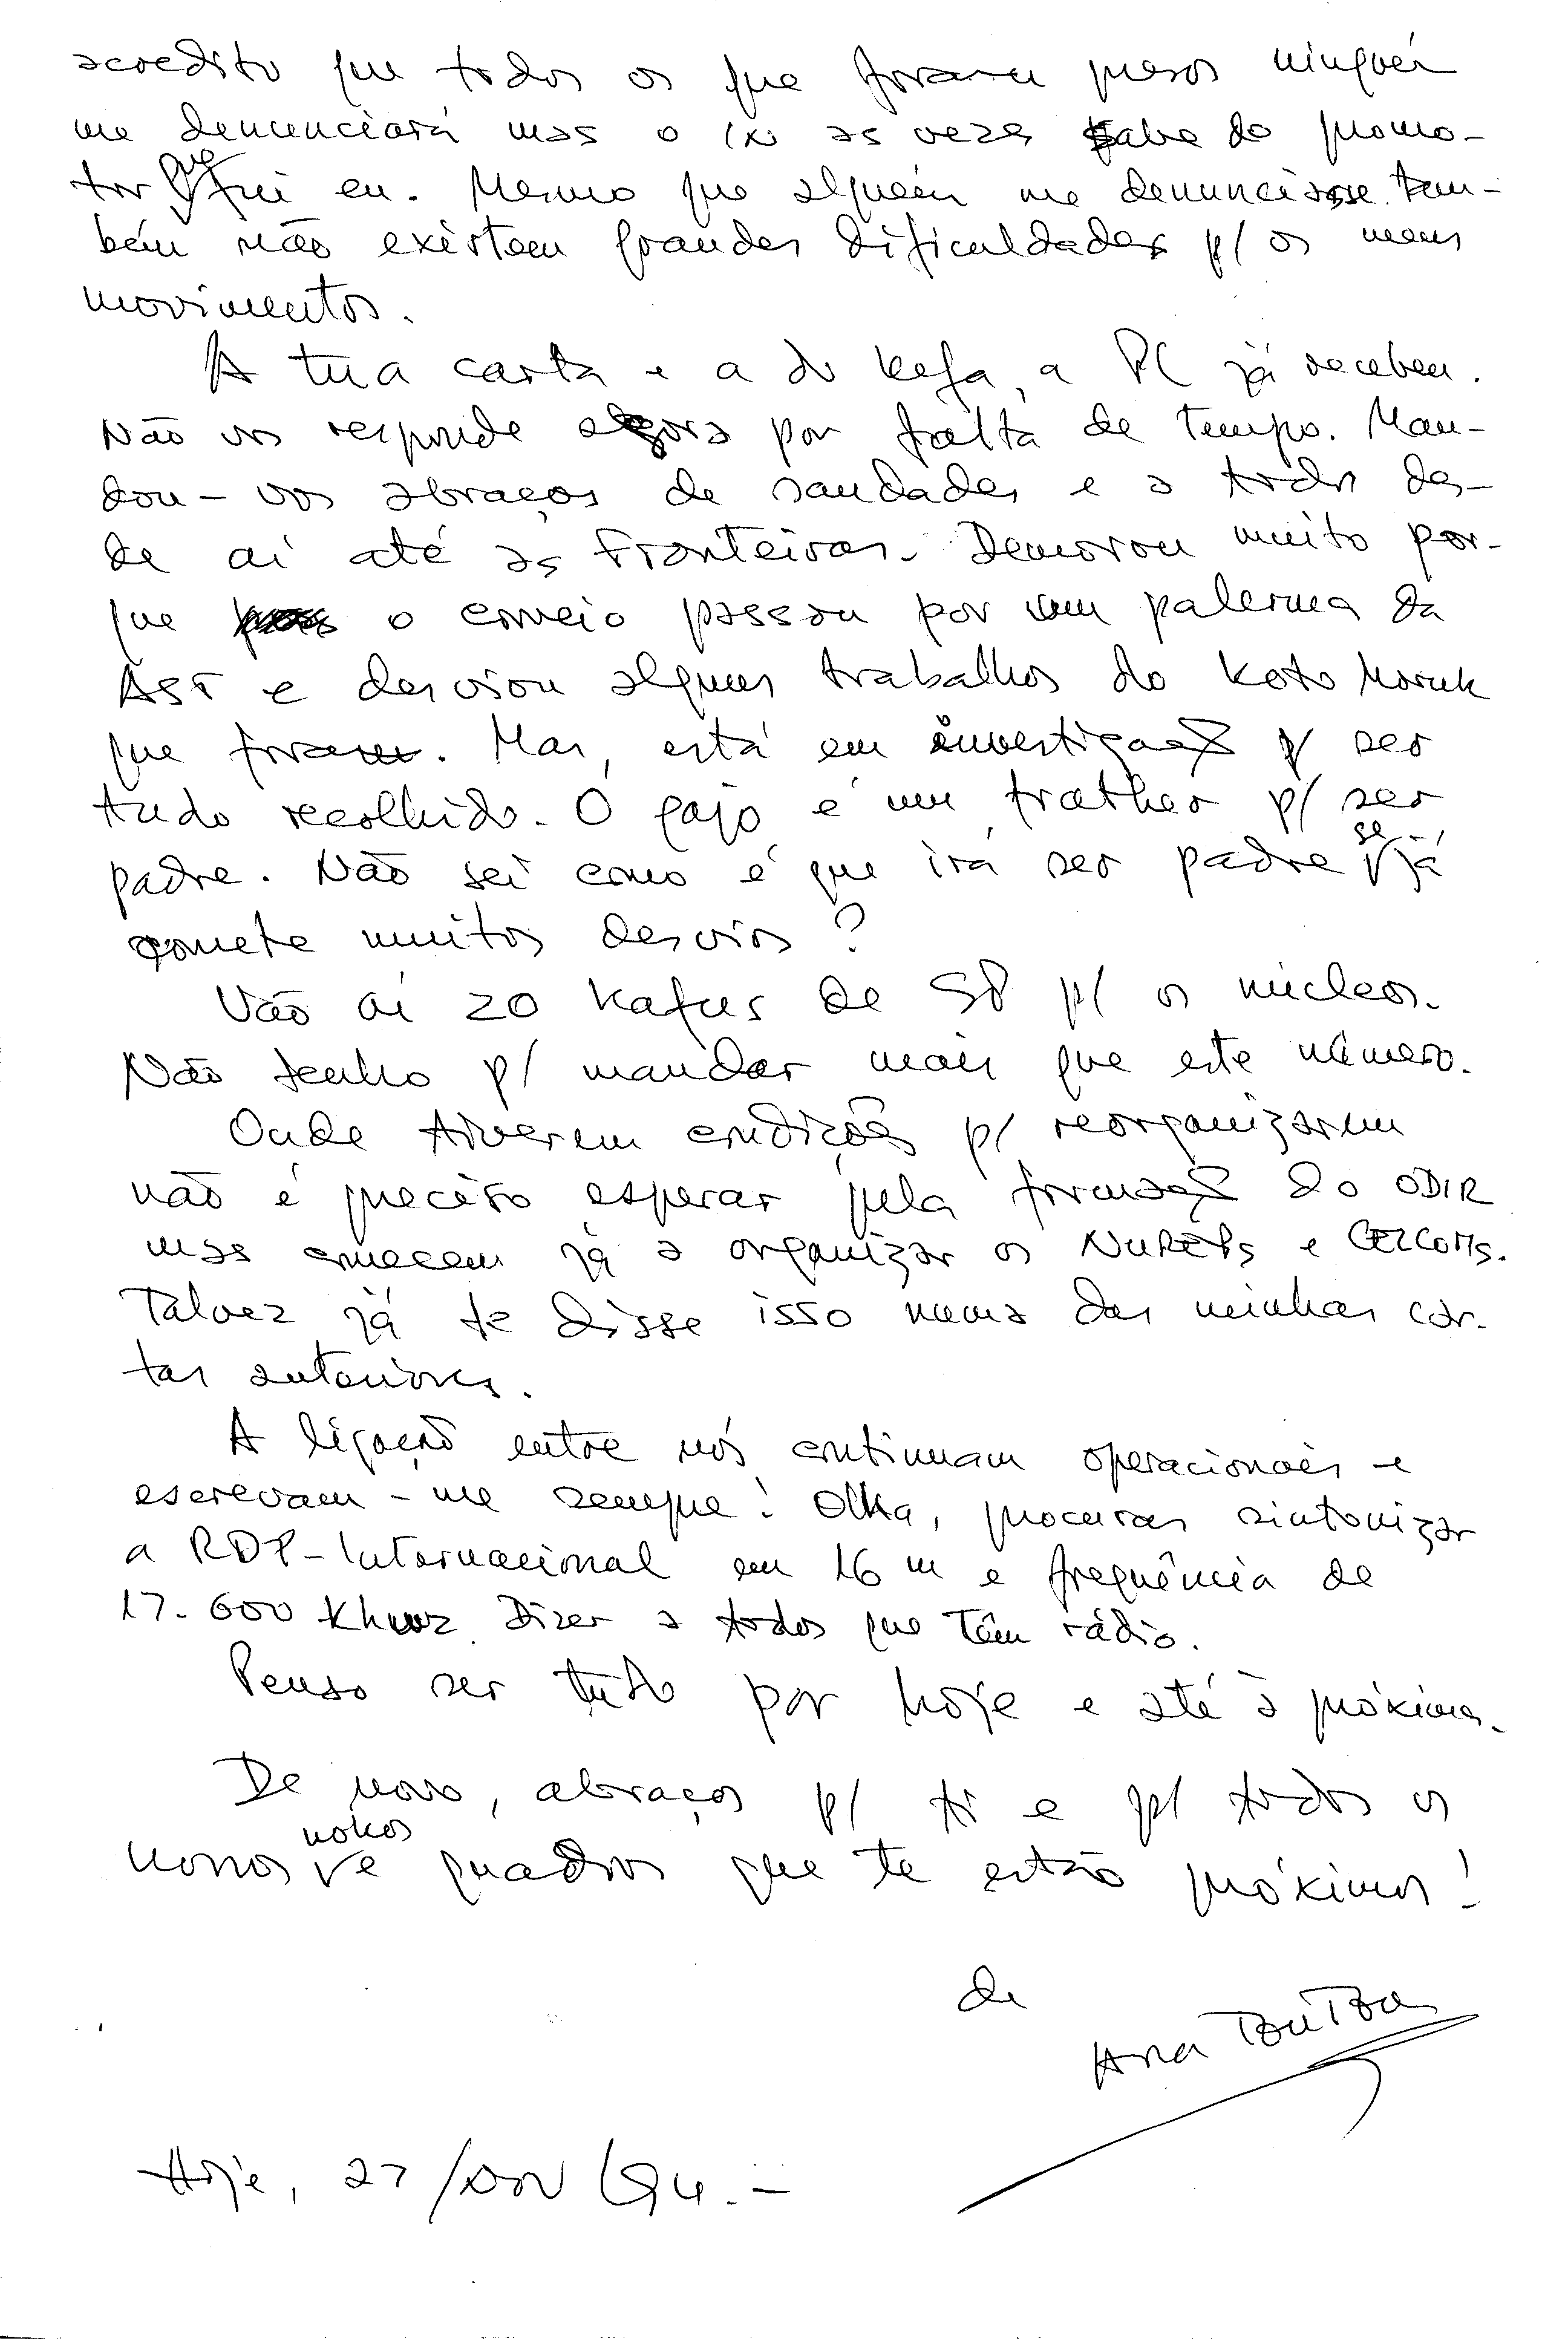 acredito que todos os que foram presos ninguém
me denunciará mas o (x) as vezes sabe do promo-
tor que fui eu. Mesmo que alguém me denunciasse tam-
bém não existem grandes dificuldades p/ os meus
movimentos.
A tua carta e a do Kefa, a PC já recebeu.
Não vos responde agora por falta de tempo. Man-
dou-vos abraços de saudades e a todos des-
de aí até as Fronteiras. Demorou muito por-
que o correio passou por um palerma da
AST e desviou alguns trabalhos do Koto Moruk
que foram. Mas, está em investigação p/ ser
tudo recolhido. O gajo é um p/ ser
padre. Não sei como é que irá ser padre se já
comete muitos desvios?
Vão aí 20 Kafus de p/ os núcleos.
Não tenho p/ mandar mais que este número.
Onde tiverem condições p/ reorganizarem
não é preciso esperar pela formação do ODIR
mas comecem já a organizar os NUREPs e CELCOMs.
Talvez já te disse isso numa das minhas car-
tas anteriores.
A ligação entre nós continuam operacionais e
escrevam-me sempre! Olha, procuras sintonizar
a RDP-Internacional em 16 m e frequência de
17.600 Dizer a todos que têm rádio.
Penso ser tudo por hoje e até à próxima.
De novo, abraços p/ ti e p/ todos os
nokos
nossos e quadros que te estão próximos!
de
Ana
Hoje, 27/NOV/94.-